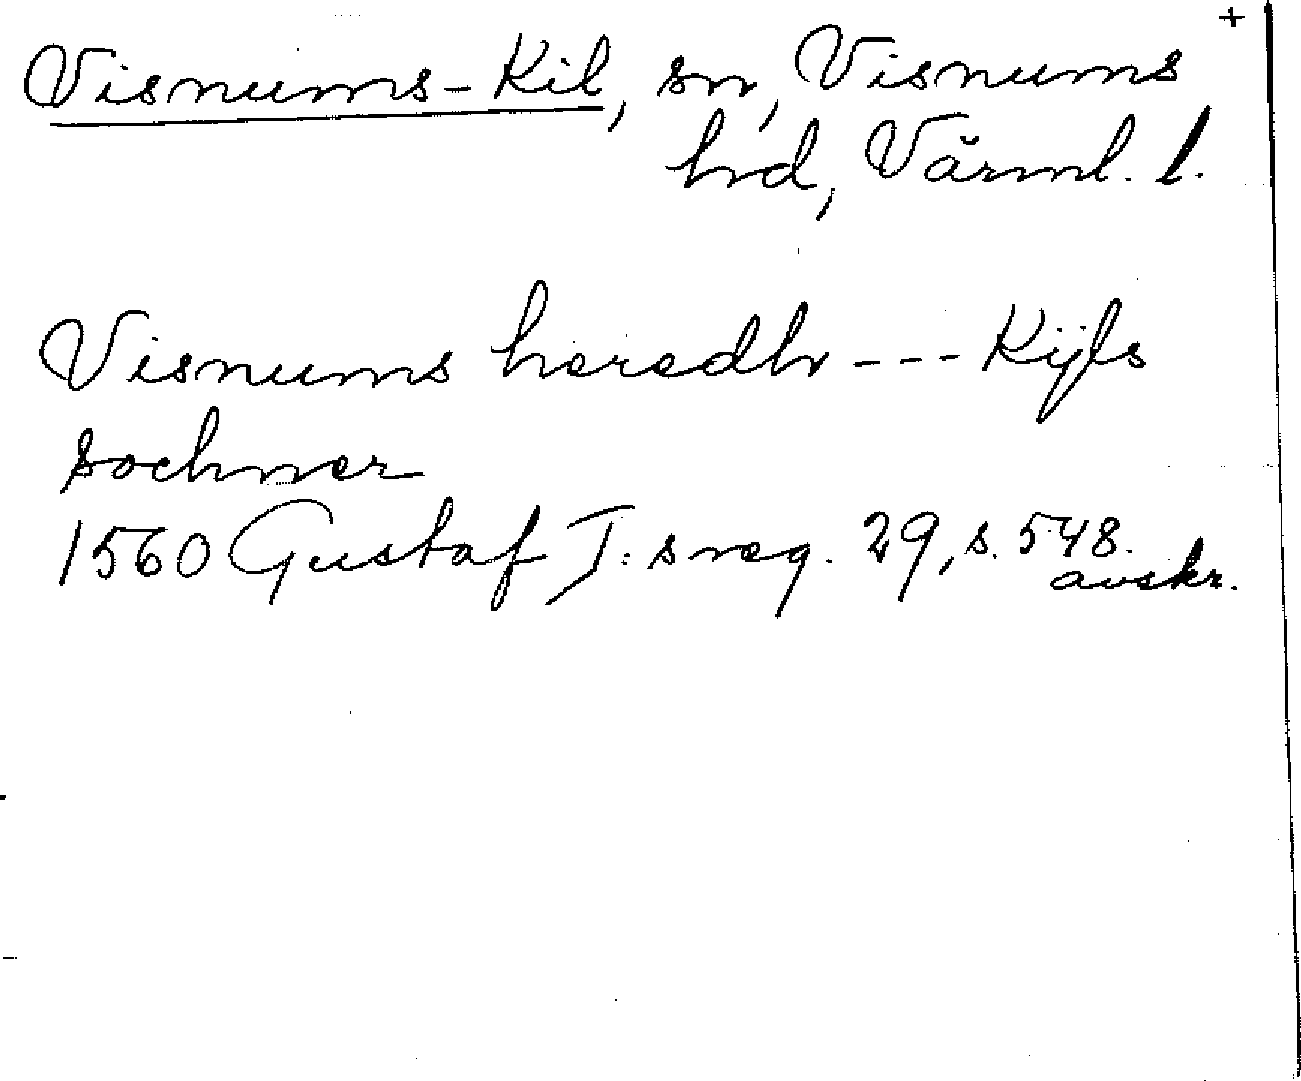 +
Visnums-Kil, sn, Visnums
hd, Värml. l.
Visnums heredh --- Kijls
sochner
1560 Gustaf I:s reg. 29, s. 548.
avskr.